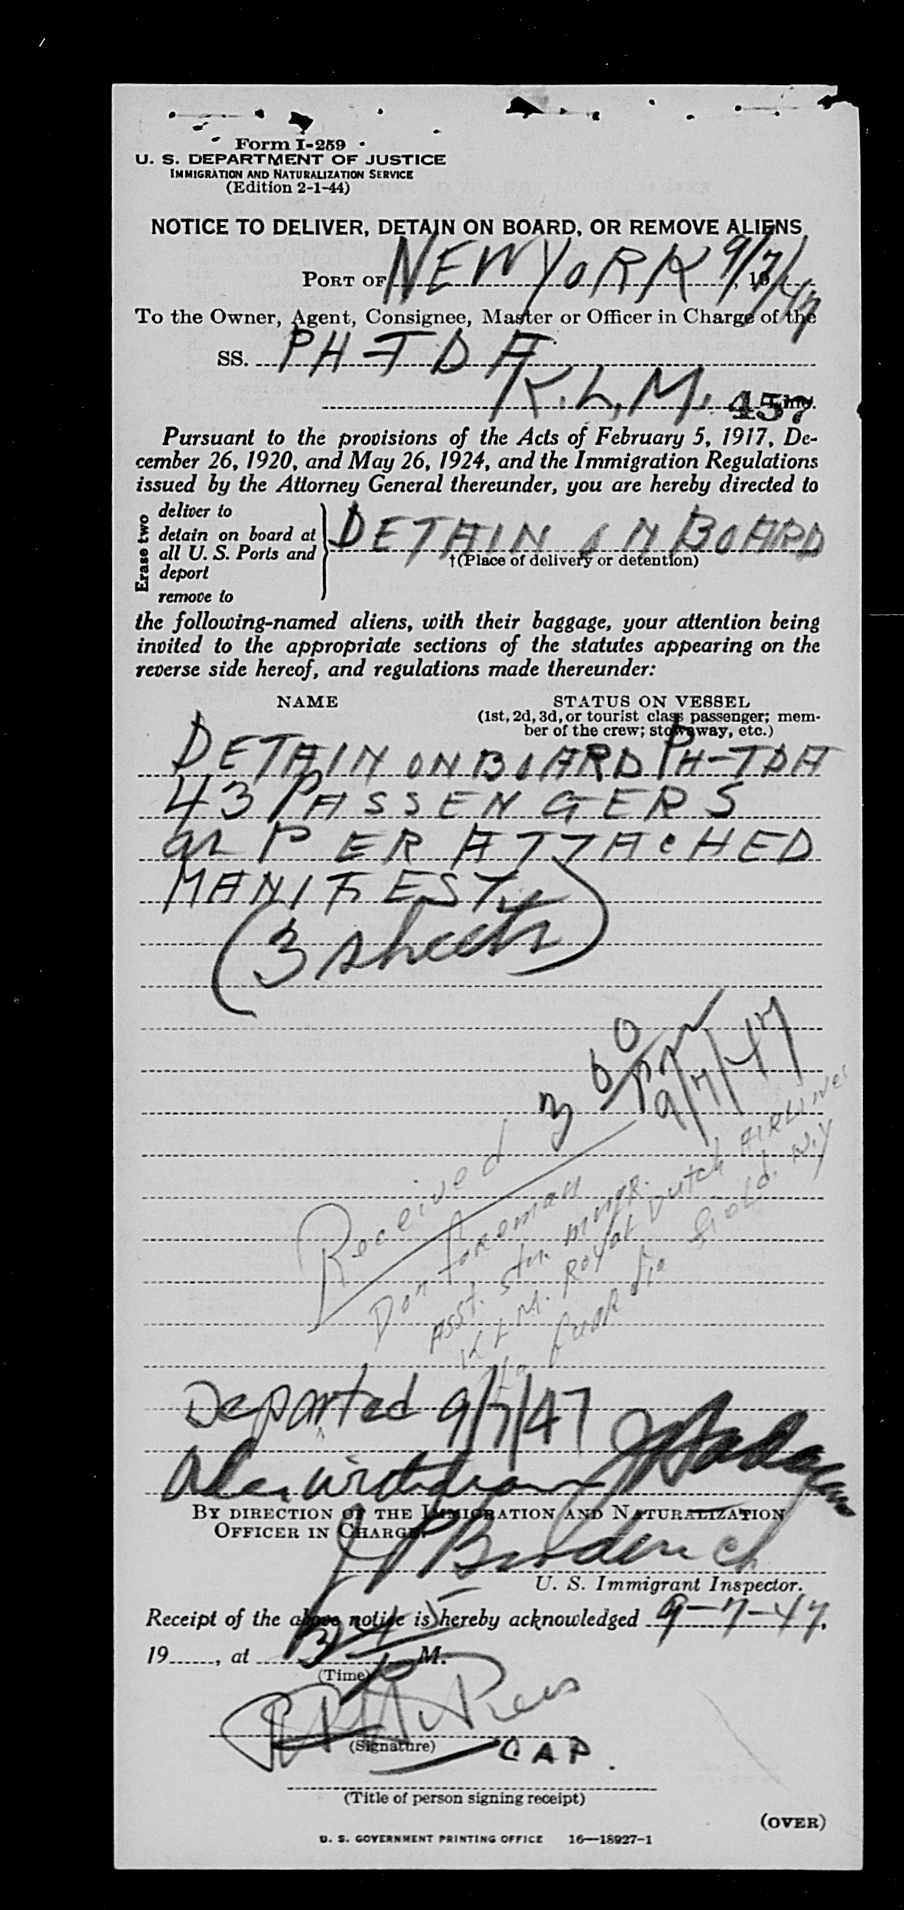 Form I-259
U. S. DEPARTMENT OF JUSTICE
IMMIGRATION AND NATURALIZATION SERVICE
(Edition 2-1-44)
NOTICE TO DELIVER, DETAIN ON BOARD, OR REMOVE ALIENS
PORT OF NEW YORK 9/7/47, 19
To the Owner, Agent, Consignee, Master or Officer in Charge of the
SS. PH-TDA
K.L.M. 457 Line.
Pursuant to the provisions of the Acts of February 5, 1917, De-
cember 26, 1920, and May 26, 1924, and the Immigration Regulations
issued by the Attorney General thereunder, you are hereby directed to
Erase two
deliver to
detain on board at
all U. S. Ports and
deport
remove to
DETAIN ON BOARD
†(Place of delivery or detention)
the following-named aliens, with their baggage, your attention being
invited to the appropriate sections of the statutes appearing on the
reverse side hereof, and regulations made thereunder:
NAME STATUS ON VESSEL
(1st, 2d, 3d, or tourist class passenger; mem-
ber of the crew; stowaway, etc.)
DETAIN ON BOARD PH-TDA
43 PASSENGERS
as PER ATTACHED
MANIFEST.
(3 sheets)
Received 3 00 pm 9/7/47
Don Foreman
Asst. Stn mngr.
KLM. Royal Dutch AIRLINES
La Guardia field. N.Y
Departed 9/7/47
BY DIRECTION OF THE IMMIGRATION AND NATURALIZATION
OFFICER IN CHARGE.
U. S. Immigrant Inspector.
Receipt of the above notice is hereby acknowledged 9-7-47,
19......, at 3 45 P M.
(Time)
(Signature)
CAP.
(Title of person signing receipt)
(OVER)
U. S. GOVERNMENT PRINTING OFFICE 16—18927-1